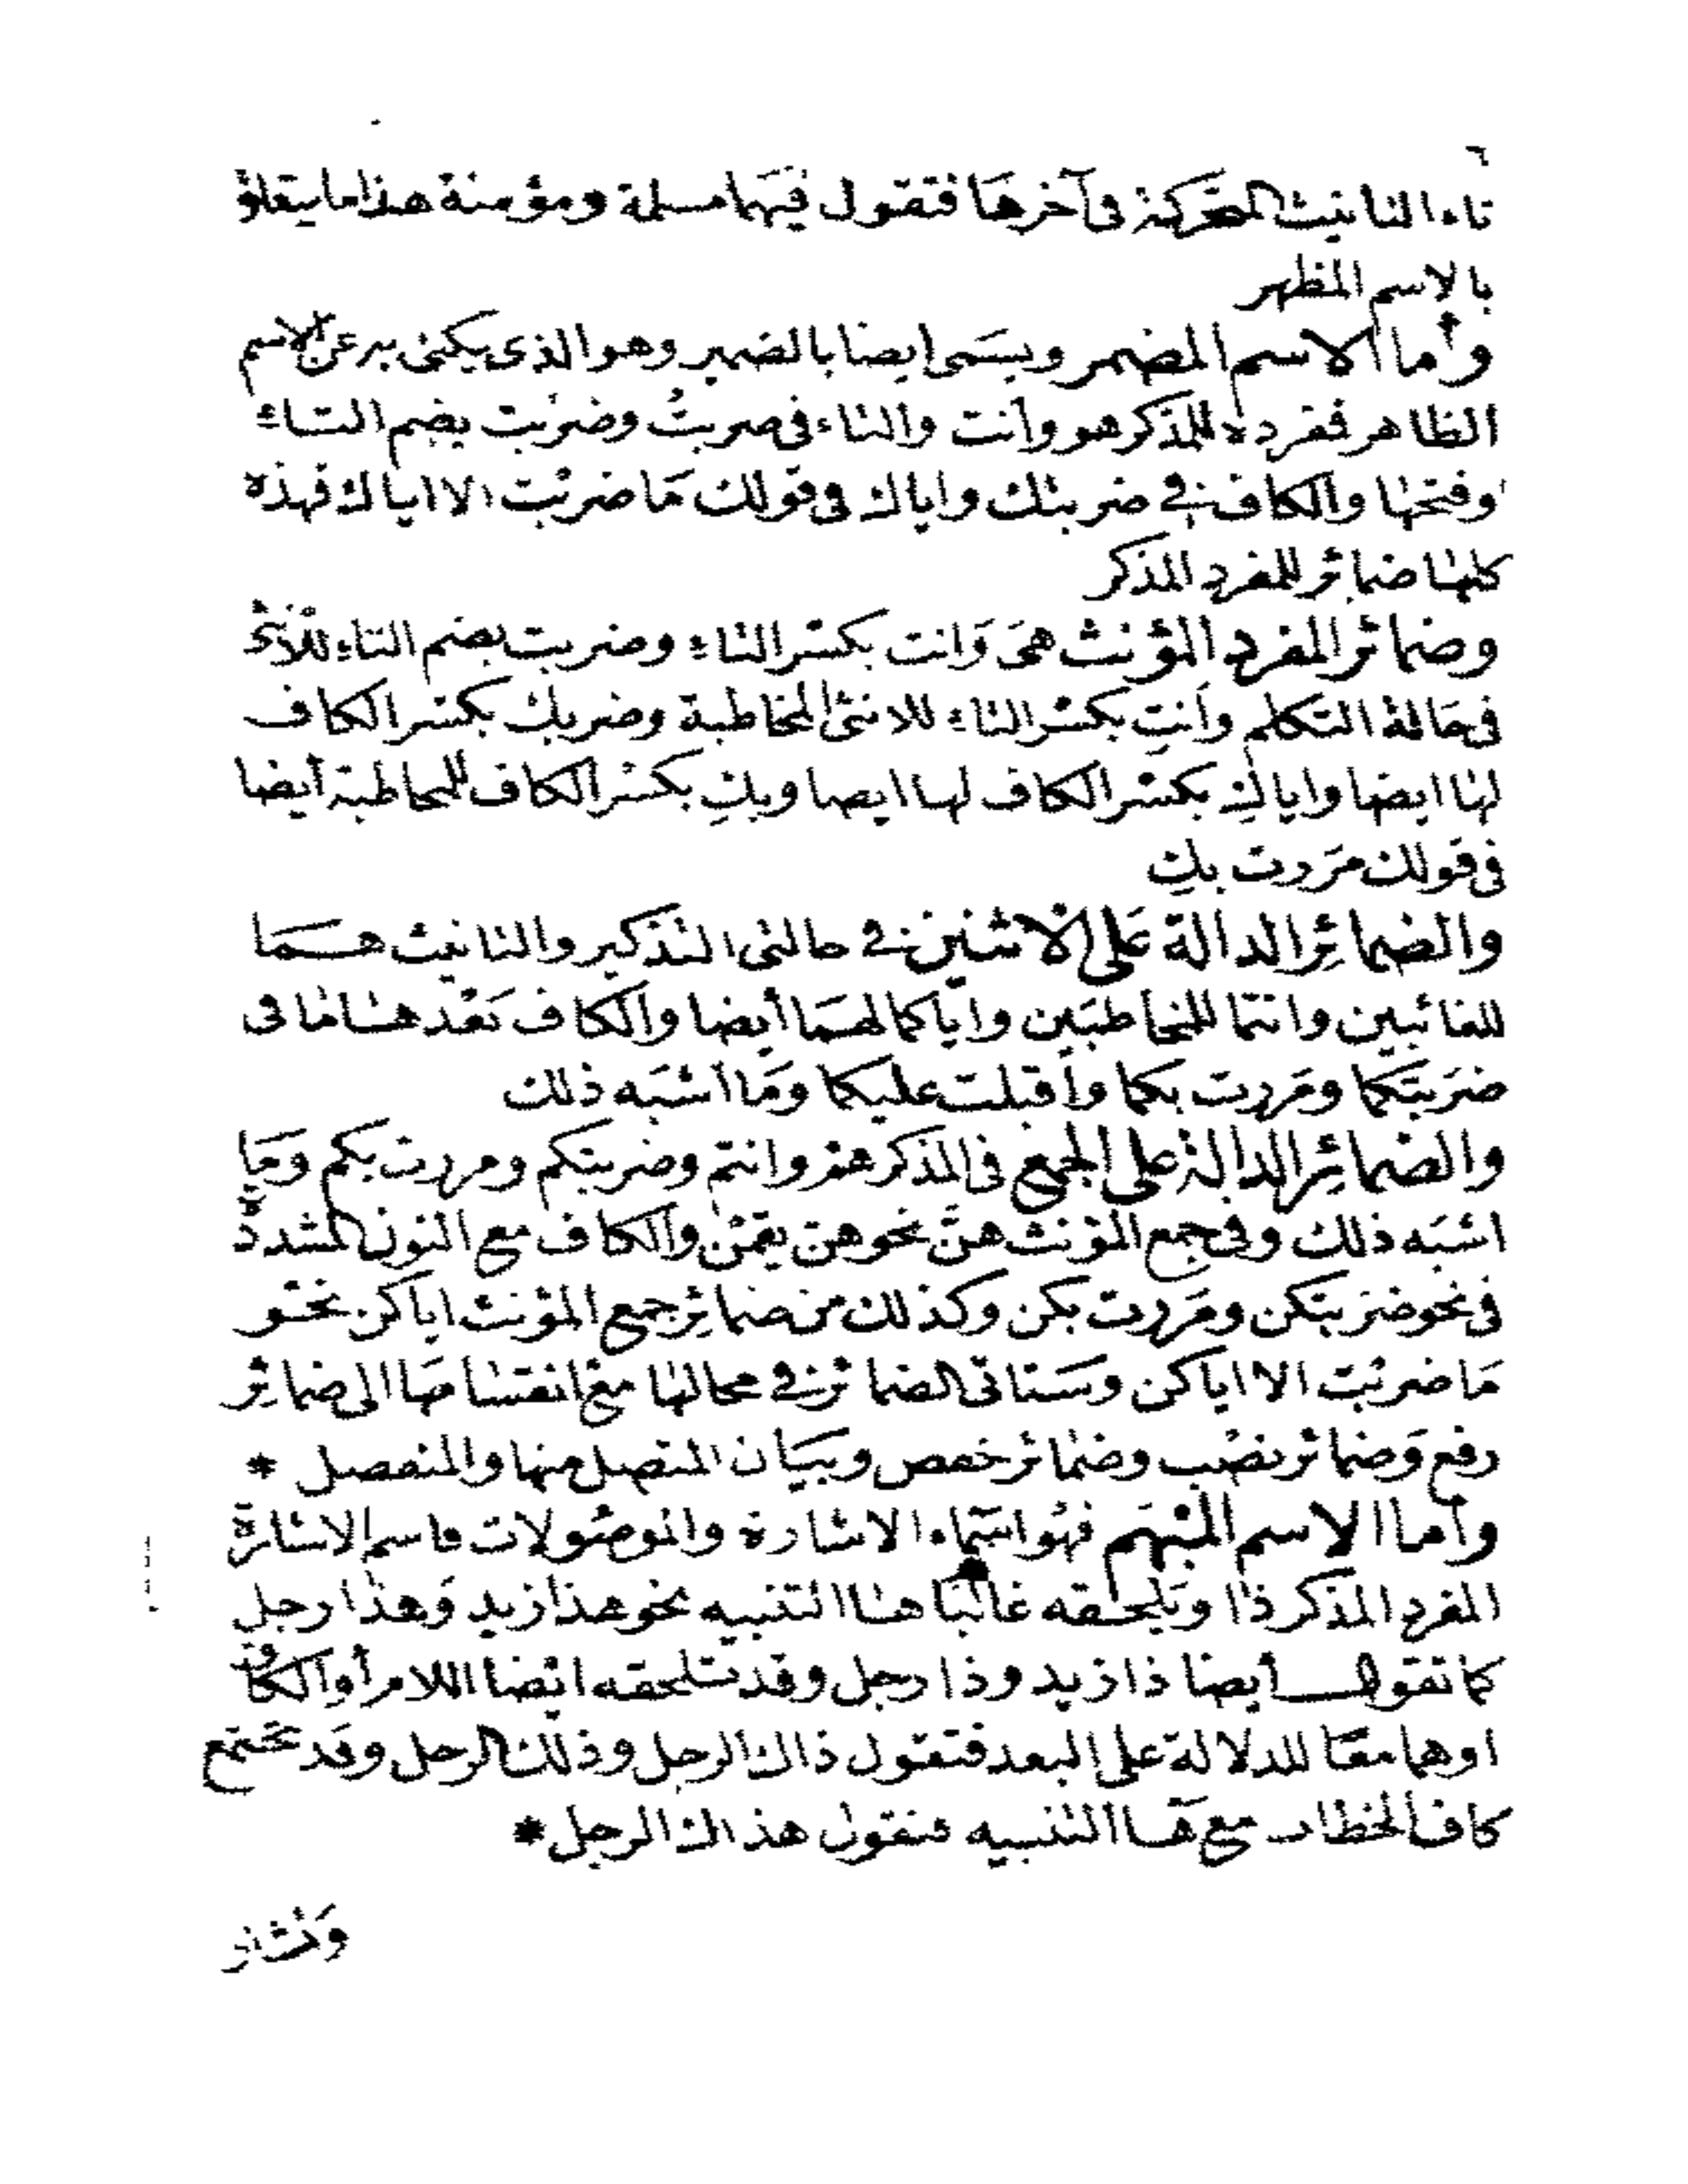 ٦
تاء التأنيث المتحركة فى آخرها فتقول فيهما مسلمة ومؤمنة هذا ما يتعلق
بالاسم المظهر
وأما الاسم المضمر ويسمى ايضا بالضمير وهو الذى يكنى به عن الاسم
الظاهر فمفرده للمذكر هو وأنت والتاء فى ضربتُ وضربت بضم التاء
وفتحها والكاف فى ضربتك واياك فى قولك مَا ضربْت الا اياك فهذه
كلها ضمائر للمفرد المذكر
وضمائر المفرد المؤنث هىَ وَانت بكسر التاء وضربت بضم التاء للأنثى
فى حَالة التكلم وأنتِ بكسر التاء للانثى المخاطبة وضربك بكسر الكاف
لها ايضا واياكِ بكسر الكاف لها ايضا وبكِ بكسر الكاف للمخاطبة أيضا
فى قولك مَررت بكِ
والضمائِر الدالة عَلى الاثنين فى حالتى التذكير والتأنيث همَا
للغائبين وانتما للمخاطبَين واياكما لهمَا أيضا والكاف بَعْدها ما فى
ضرَبتكما ومَررت بكما وأقبلت عليكما وَمَا اشبَه ذلك
والضمائِر الدالة على الجمع فى المذكر هم وانتم وضربتكم ومررت بكم وَمَا
اشبَه ذلك وفى جمع المؤنث هنَّ نحو هن يقمْن والكاف مع النون المشدّدة
فى نحو ضرَبتكن ومَررت بكن وكذلك من ضمائِر جمع المؤنث اياكن نحو
مَا ضربْت الا اياكن وسَتاتى الضمائر فى محالها معَ انقسامهَا الى ضمائر
رفع وَضمائر نصْب وضمائر خفض وبيَان المتصل منها والمنفصل *
وأما الاسم المبْهَم فهُو اسمَاء الاشارة والموصُولات فاسم الاشارة
المفرد المذكر ذا وَيلحقه غالبًا ها التنبيه نحو هذا زيد وَهذا رجل
كما تقول أيضا ذا زيد وذا رجل وقد تلحقه ايْضا اللام أو الكاف
او هما معًا للدلالة على البعد فتقول ذاك الرجل وذلك الرجل وقد تجتمع
كاف الخطاب مع هَا التنبيه فتقول هذاك الرجل *